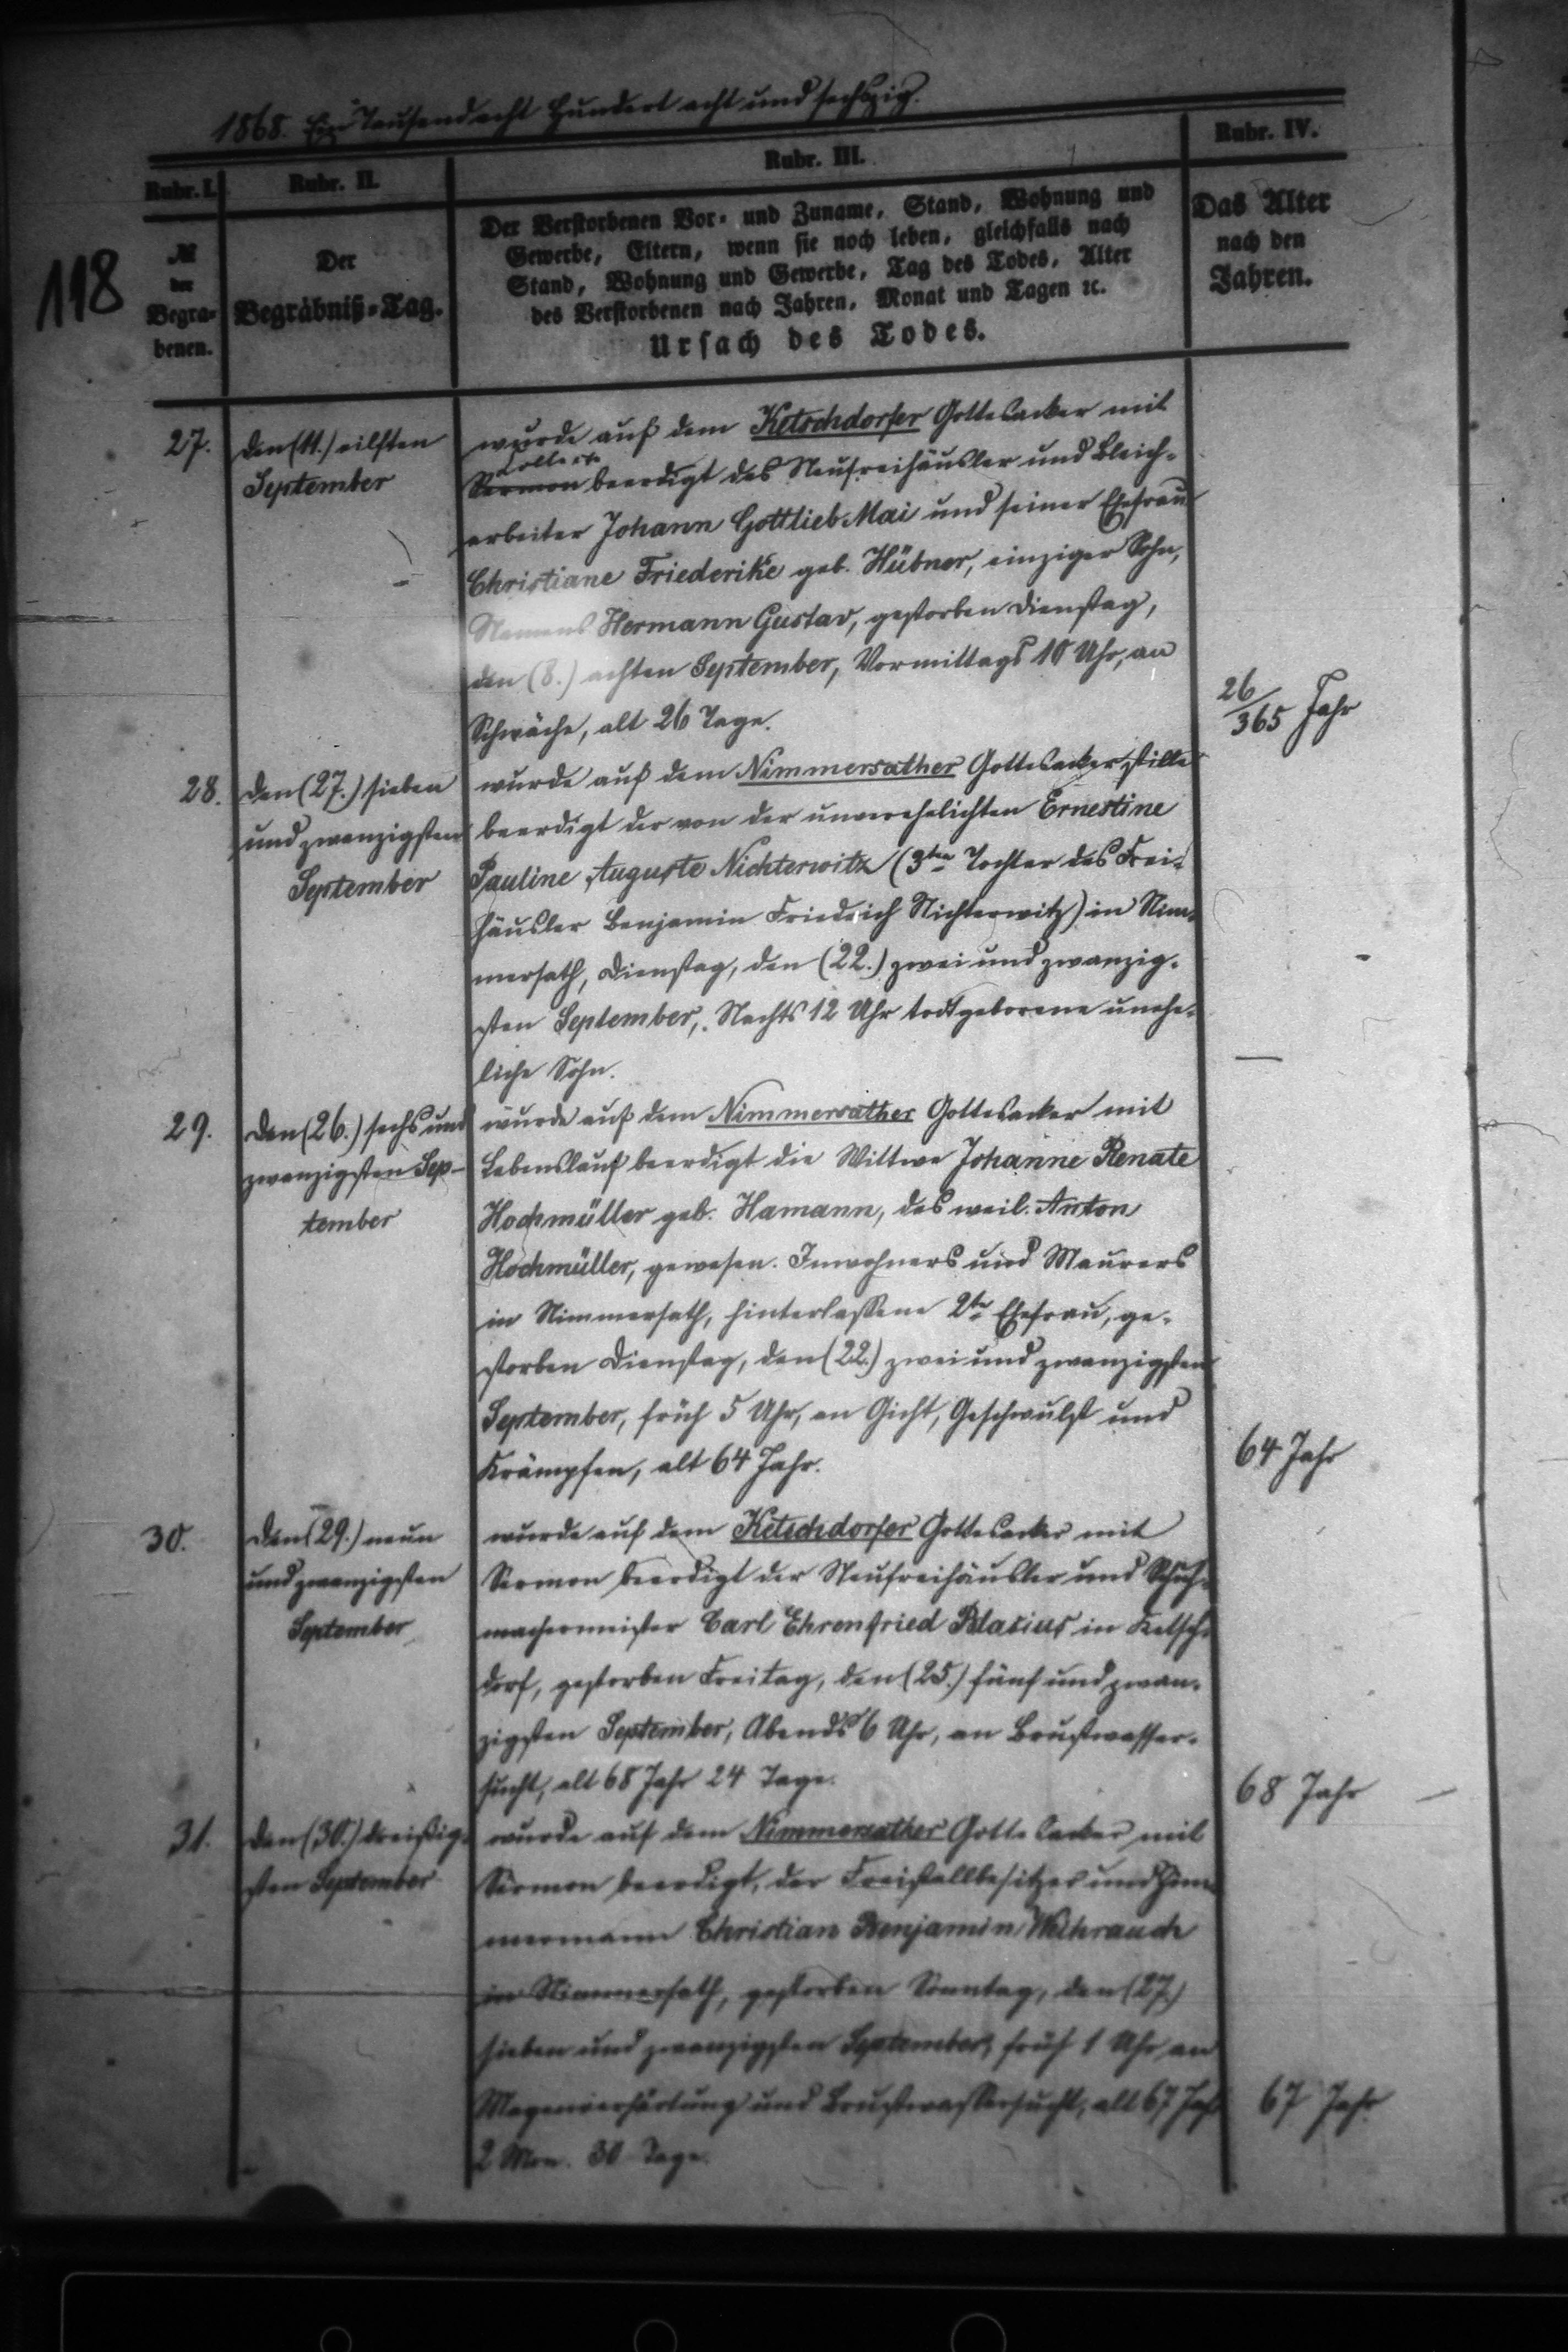 1868. Ein Tausend acht Hundert acht und sechszig.
Rubr. I.
Rubr. II.
Rubr. III.
Rubr. IV.
118
№
der
Begra-
benen.
Der
Begräbniß-Tag.
Der Verstorbenen Vor- und Zuname, Stand, Wohnung und
Gewerbe, Eltern, wenn sie noch leben, gleichfalls nach
Stand, Wohnung und Gewerbe, Tag des Todes, Alter
des Verstorbenen nach Jahren, Monat und Tagen ꝛc.
Ursach des Todes.
Das Alter
nach den
Jahren.
27.
den (11.) eilften
September
wurde auf dem Ketschdorfer Gottesacker mit
Collecte
Sermon beerdigt des Neufreihäusler und Bleich-
arbeiter Johann Gottlieb Mai und seiner Ehefrau
Christiane Friederike geb. Hübner, einziger Sohn,
Namens Hermann Gustav, gestorben Dienstag,
den (8.) achten September, Vormittags 10 Uhr, an
Schwäche, alt 26 Tage.
26/365 Jahr
28.
den (27.) sieben
und zwanzigsten
September
wurde auf dem Nimmersather Gottesacker stille
beerdigt der von der unverehelichten Ernestine
Pauline Auguste Nichterwitz (3ten Tochter des Frei-
häusler Benjamin Friedrich Nichterwitz) in Nim-
mersath, Dienstag, den (22.) zwei und zwanzig-
sten September, Nachts 12 Uhr todtgeborene unehe-
liche Sohn.
—
29.
den (26.) sechs und
zwanzigsten Sep-
tember
wurde auf dem Nimmersather Gottesacker mit
Lebenslauf beerdigt die Wittwe Johanne Renate
Hochmüller geb. Hamann, des weil. Anton
Hochmüller, gewesen. Inwohners und Maurers
in Nimmersath, hinterlassene 2te Ehefrau, ge-
storben Dienstag, den (22.) zwei und zwanzigsten
September, früh 5 Uhr, an Gicht, Geschwulst und
Krämpfen, alt 64 Jahr.
64 Jahr
30.
den (29.) neun
und zwanzigsten
September
wurde auf dem Ketschdorfer Gottesacker mit
Sermon beerdigt der Neufreihäusler und Schuh-
machermeister Carl Ehrenfried Blasius in Ketsch-
dorf, gestorben Freitag, den (25.) fünf und zwan-
zigsten September, Abends 6 Uhr, an Brustwasser-
sucht, alt 68 Jahr 24 Tage.
68 Jahr
31.
den (30.) dreißig-
sten September
wurde auf dem Nimmersather Gottesacker mit
Sermon beerdigt, der Freistellbesitzer und Zim-
mermann Christian Benjamin Weihrauch
in Nimmersath, gestorben Sonntag, den (27.)
sieben und zwanzigsten September, früh 1 Uhr an
Magenverhärtung und Brustwassersucht, alt 67 Jahr
2 Mon. 30 Tage.
67 Jahr